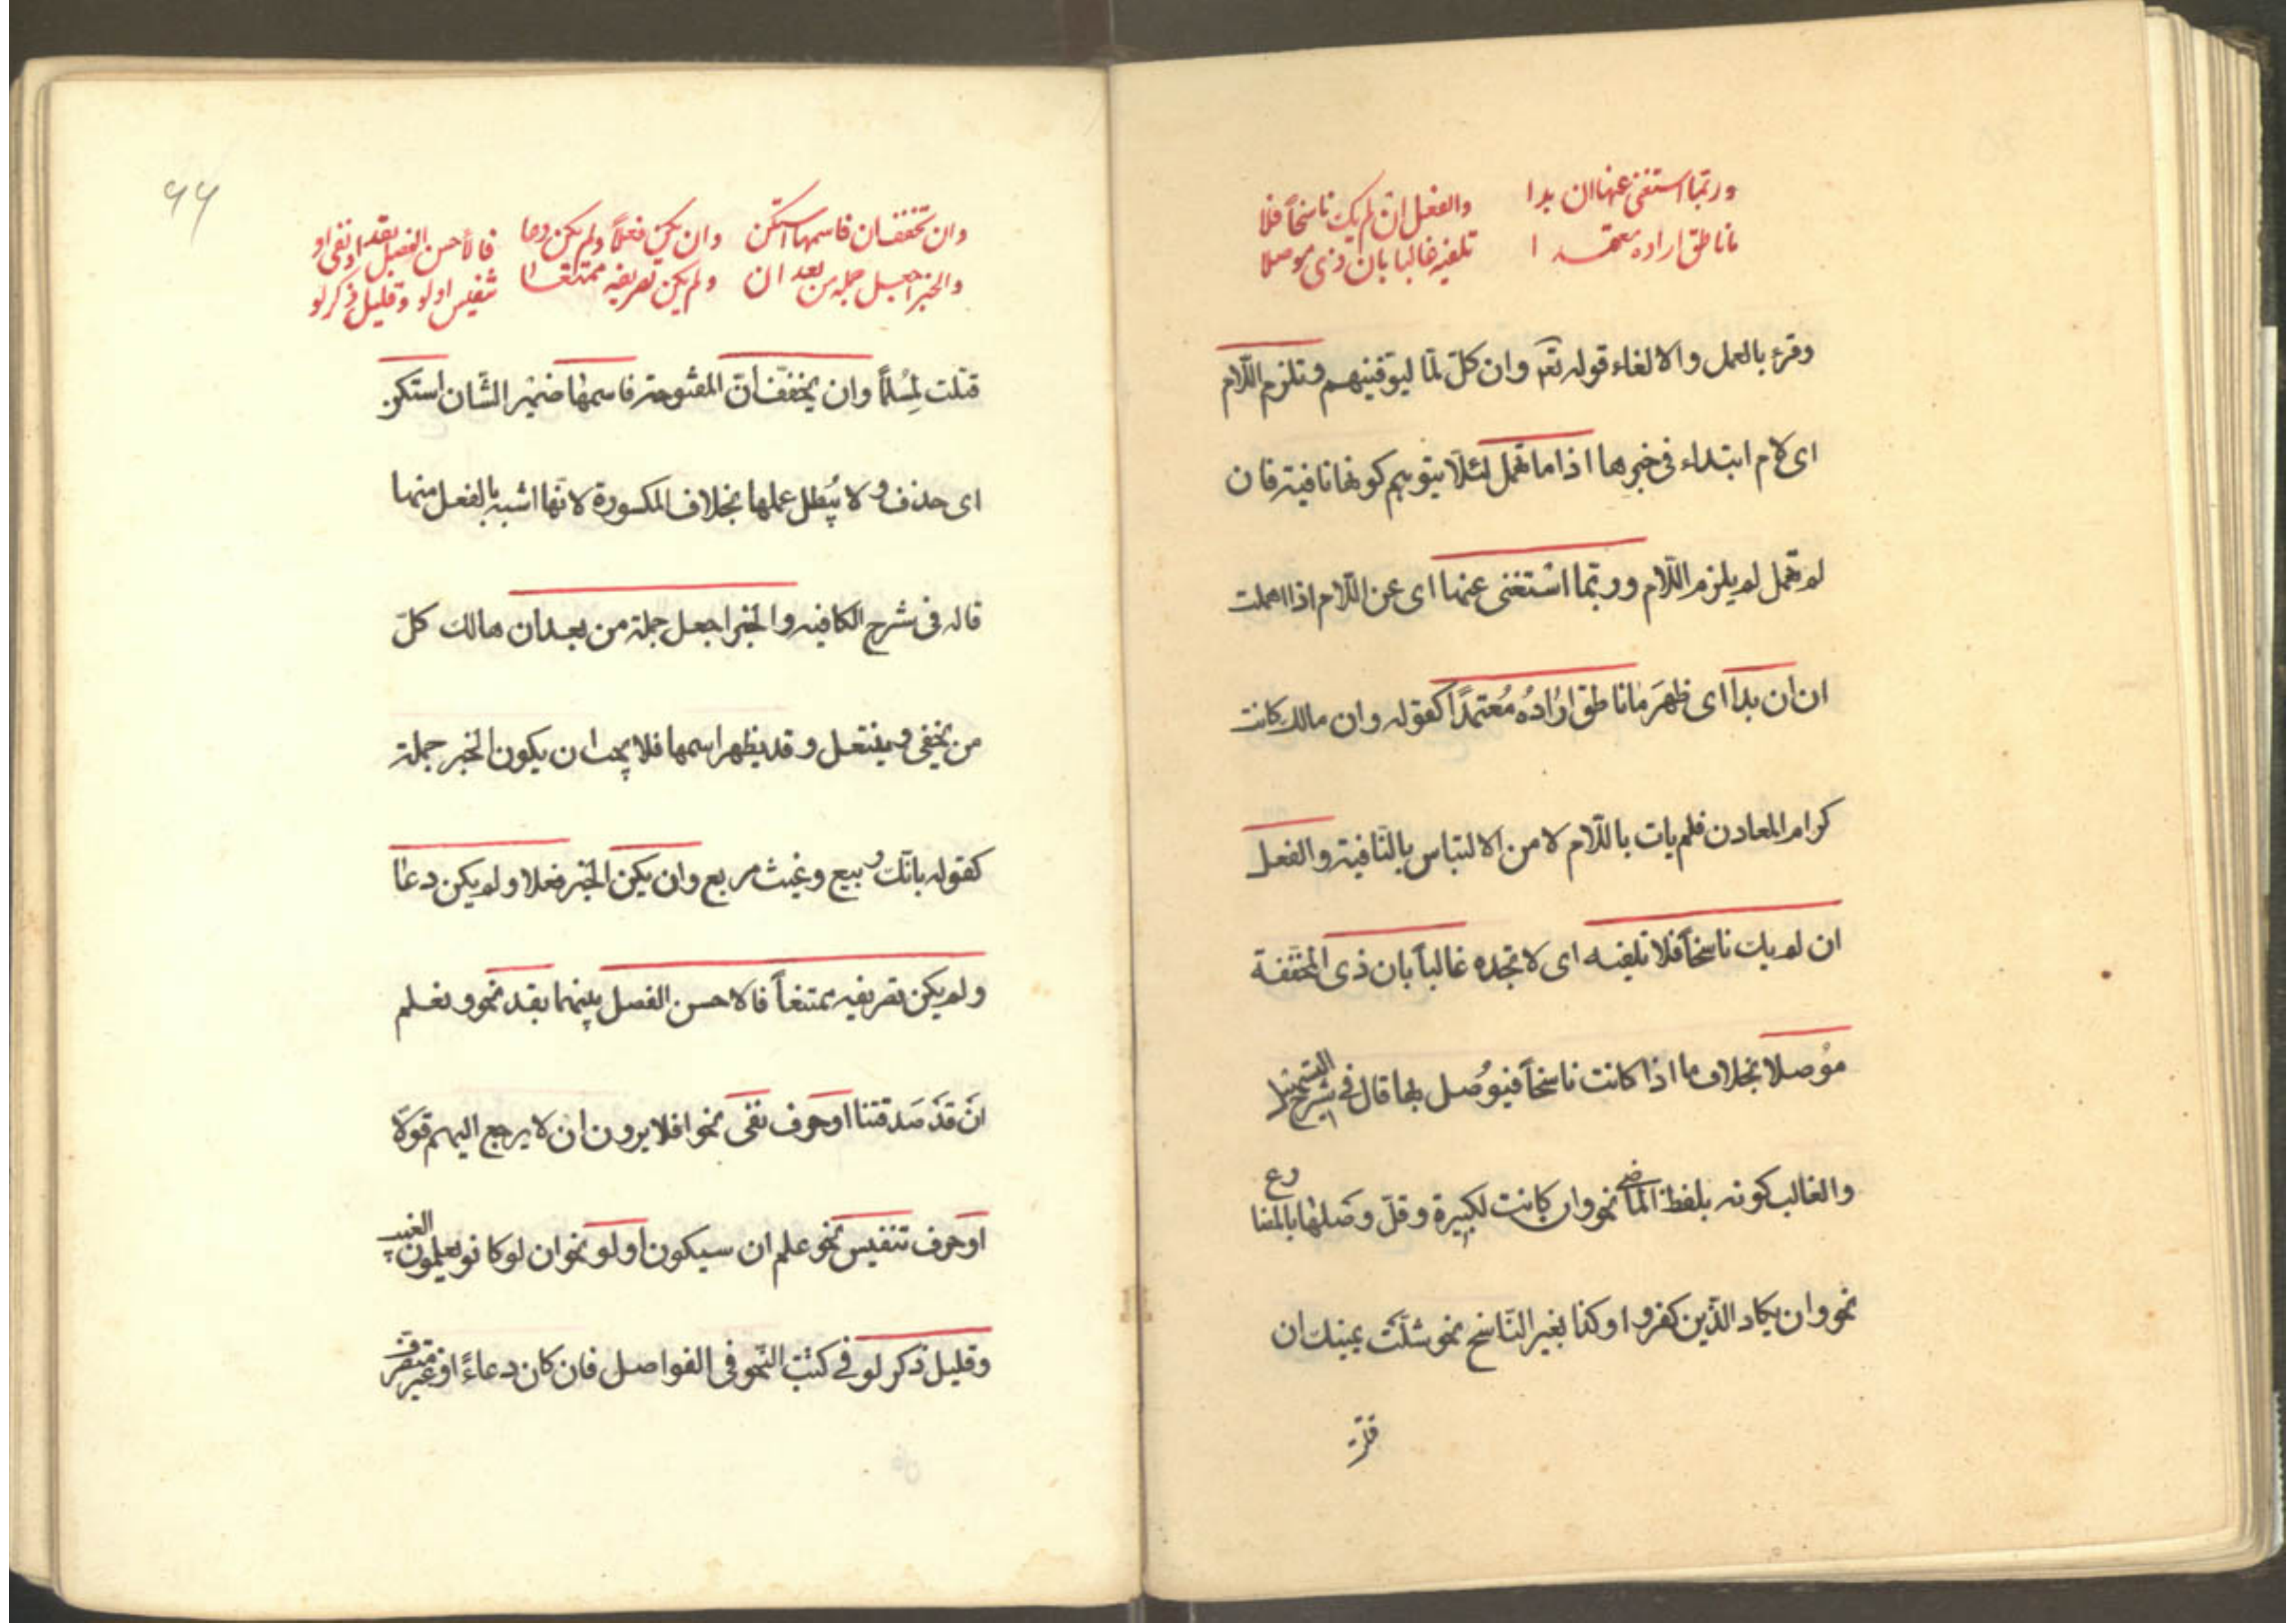 وربما استغنى عنها ان بدا والفعل ان لم يك ناسخاً فلا
ما ناطق اراده معتمدا تلفيه غالبا بان ذى موصلا
وقرء بالعمل والالغاء قوله تعم وان كلّ لمّا ليوفّينهم وتلزم اللّام
اى لام ابتداء فى خبرها اذا ما تهمل لئلّا يتوهم كونها نافية فان
لم تهمل لم يلزم اللّام وربّما استغنى عنها اى عن اللّام اذا اهملت
ان ان بدا اى ظهَر ما ناطق ارادُه مُعتمدًا كقوله وان مالك كانت
كرام المعادن فلم يات باللّام لامن الالتباس بالنّافية والفعل
ان لم يك ناسخاً فلا تلفيه اى لا تجده غالباً بان ذى المخفّفة
مُوصلا بخلاف ما اذا كانت ناسخاً فيوُصل بها قال فى شرح التسهيل
والغالب كونه بلفظ الماضى نحو وان كانت لكبيرة وقلّ وصَلها بالمضارع
نحو وان يكاد الذّين كفروا وكذا بغير النّاسخ نحو شلّت يمينك ان
قتلت
۹۹
وان تخفف ان فاسمها استكن وان يكن فعلاً ولم يكن دعا فالأحسن الفصل بقد او نفى او
والخبر اجعل جملة من بعد ان ولم يكن تصريفه ممتنعا تنفيس او لو وقليل ذكر لو
قتلت لمُسلماً وان يخفّف أنّ المفتوحة فاسمها ضمير الشّان استكن
اى حذف ولا يُبطل عملها بخلاف المكسورة لانّها اشبه بالفعل منها
قاله فى شرح الكافيه والخبر اجعل جملة من بعد ان هالك كلّ
من يخفى وينتعل وقد يظهر اسمها فلا يجب ان يكون الخبر جملة
كقوله بانّك ربيع وغيث مريع وان يكن الخبر فعلا ولم يكن دعا
ولم يكن تصريفه ممتنعاً فالاحسن الفصل بينهما بقد نحو ونعلم
انَ قدَ صَدقتنا او حرف نفى نحو افلا يرون ان لا يرجع اليهم قولا
او حرف تنفيس نحو علم ان سيكون او لو نحو ان لو كانو يعلمون الغيب
وقليل ذكر لو فى كتب النّحو فى الفواصل فان كان دعاءً او غير متصرف